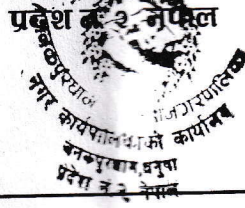 प्रदेश नं २ नेपाल
जनकपुरधाम
नगर कार्यपालिकाको कार्यालय
जनकपुरधाम, धनुषा
प्रदेश नं २ नेपाल